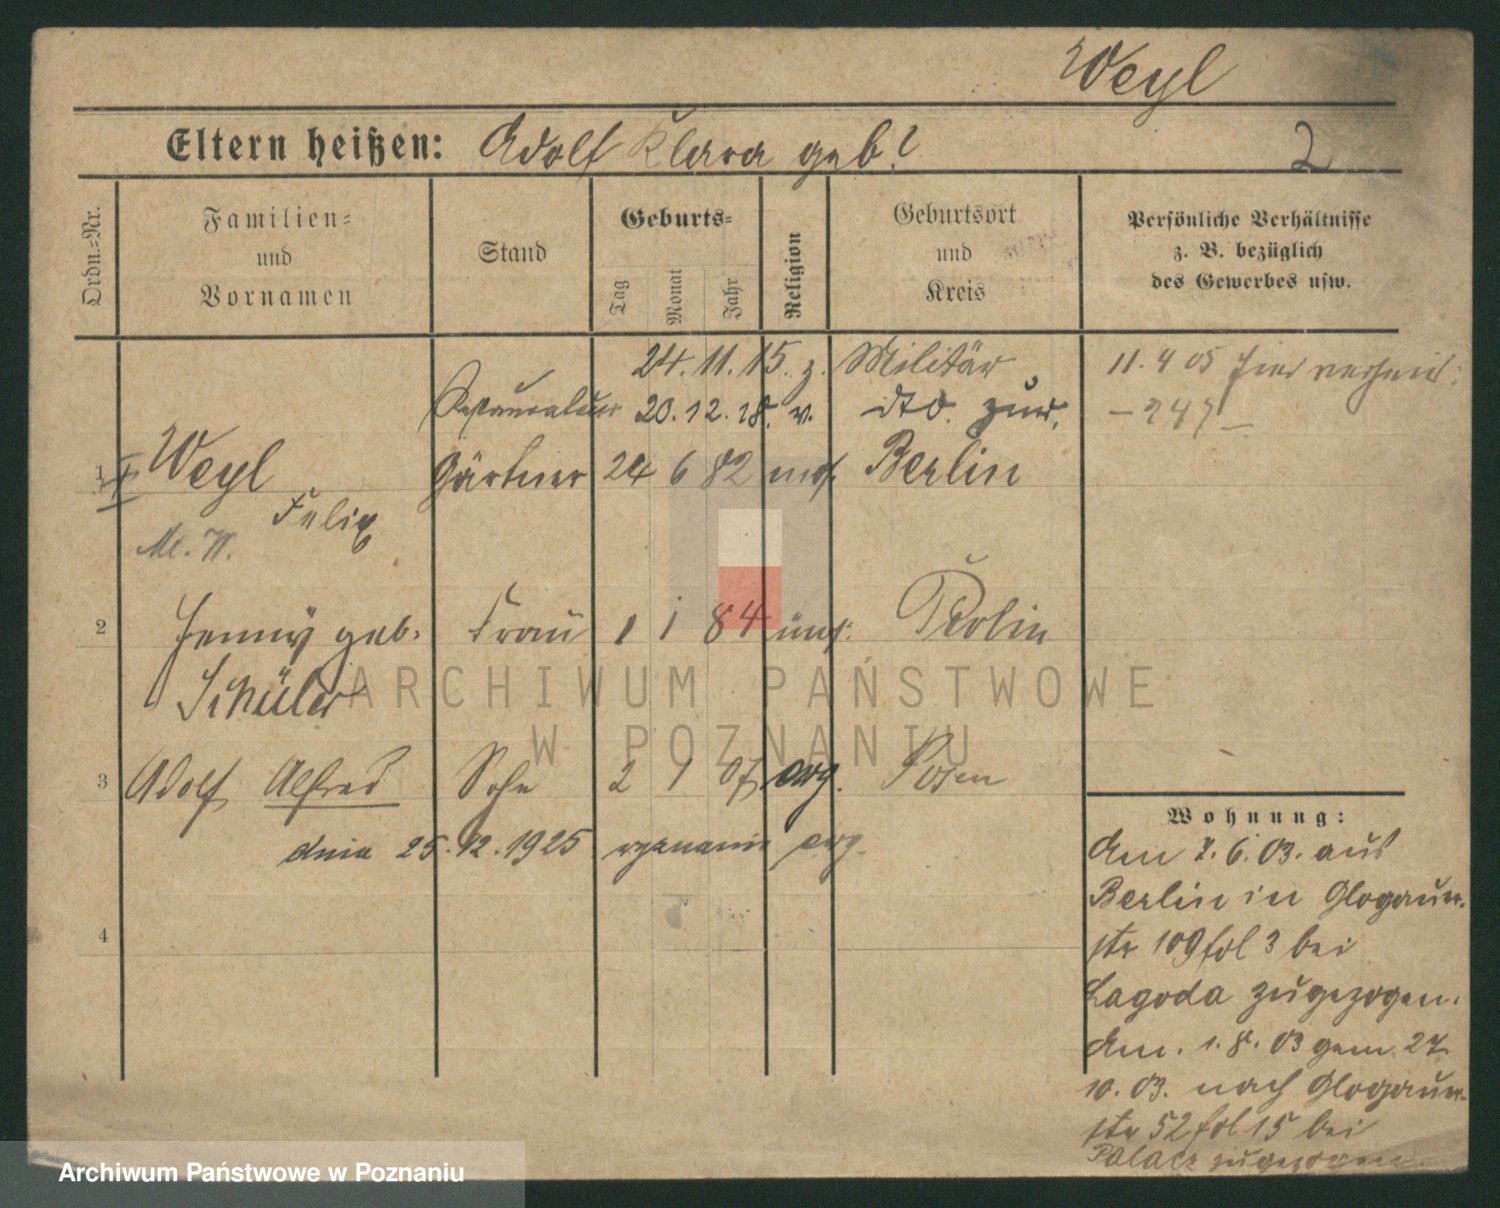 Weyl
Eltern heißen: Adolf Klara geb?
2
Ordn.=Nr.
Familien=
und
Vornamen
Stand
Geburts=
Tag
Monat
Jahr
Religion
Geburtsort
und
Kreis
Persönliche Verhältnisse
z. B. bezüglich
des Gewerbes usw.
24. 11. 15. z. Militär
11. 4 05 hier verheir.
Restaurateur 20. 12. 18. v. dto. zur.
1 Weyl Gärtner 24 6 82 mos. Berlin
Felix
2 Jenny geb. Frau 1 1 84
Schüler
3 Adolf Alfred Sohn 2 1 07 evg. Posen
dnia 25. 12. 1925 wyznanie evg.
4
Wohnung:
Am 7. 6. 03. aus
Berlin in Glogauer-
str 109 fol 3 bei
Lagoda zugezogen.
Am. 1. 8. 03 gem. 27
10. 03. nach Glogauer-
str 52 fol 15 bei
Palacz zugezogen.
ARCHIWUM PAŃSTWOWE
W POZNANIU
Archiwum Państwowe w Poznaniu